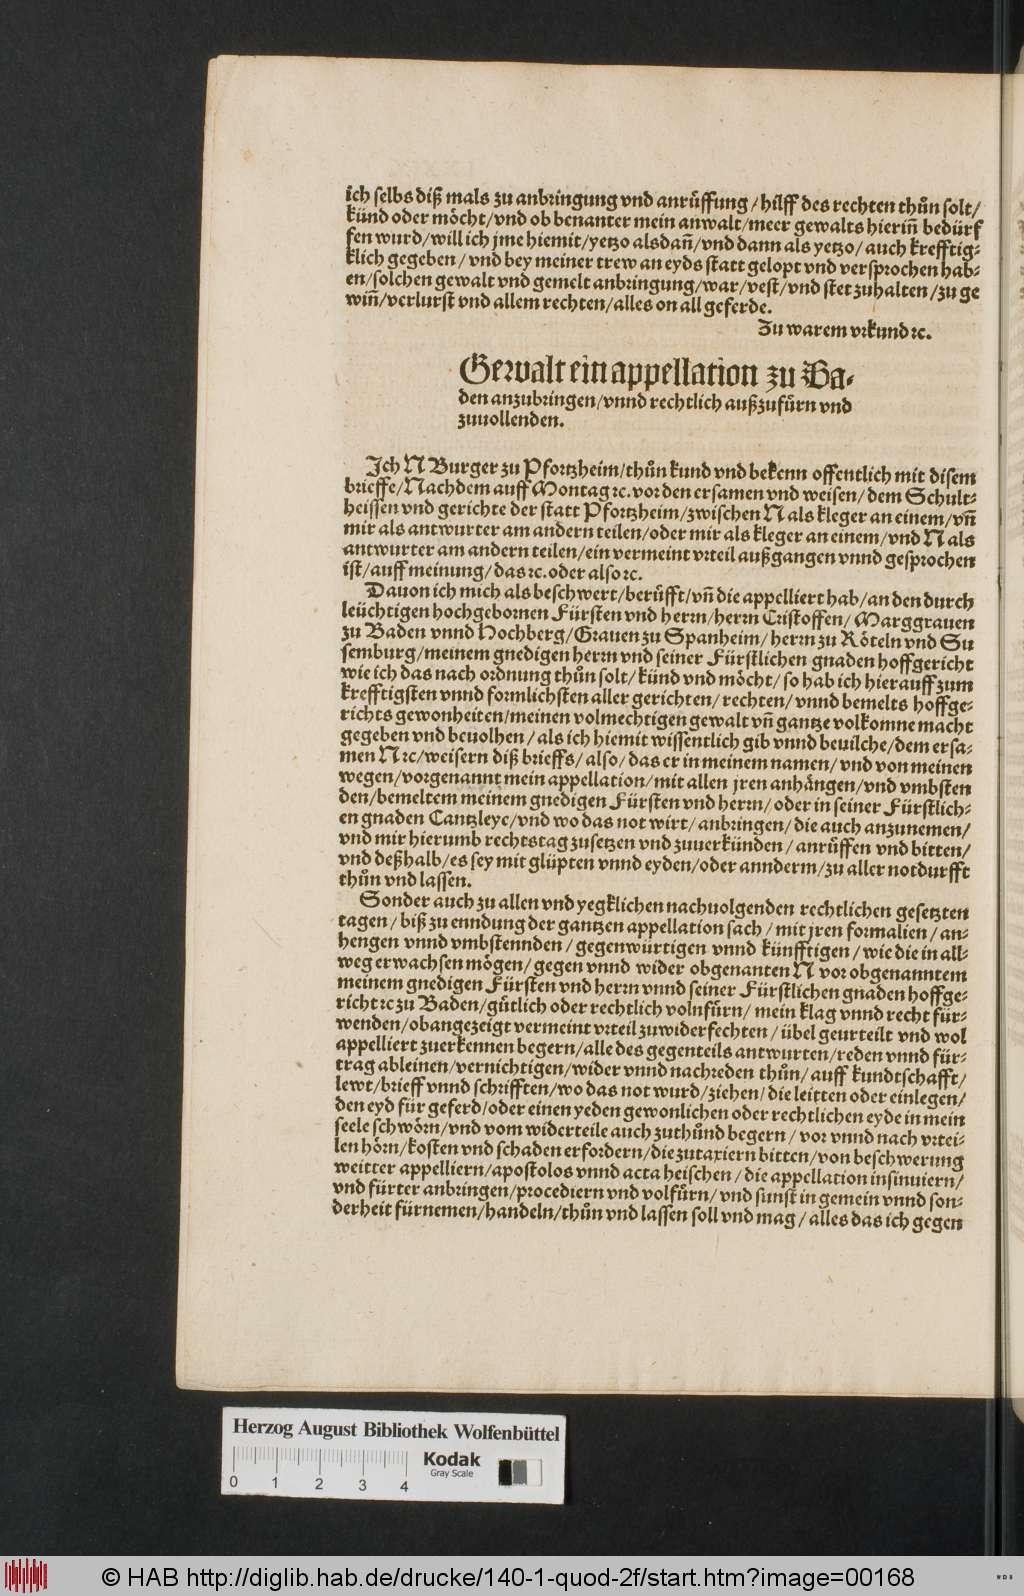 ich selbs diß mals zu anbringung vnd anrüffung/hilff des rechten thůn solt/
künd oder möcht/vnd ob benanter mein anwalt/meer gewalts hieriñ bedürf
fen wurd/will ich jme hiemit/yetzo alsdañ/vnd dann als yetzo/auch krefftig-
klich gegeben/vnd bey meiner trew an eyds statt gelopt vnd versprochen hab-
en/solchen gewalt vnd gemelt anbringung/war/vest/vnd stet zuhalten/zu ge
wiñ/verlurst vnd allem rechten/alles on all geferde.
Zu warem vrkund ꝛc.
Gewalt ein appellation zu Ba-
den anzubringen/vnnd rechtlich außzufürn vnd
zuuollenden.
Ich N Burger zu Pfortzheim/thůn kund vnd bekenn offentlich mit disem
brieffe/Nachdem auff Montag ꝛc. vor den ersamen vnd weisen/dem Schult-
heissen vnd gerichte der statt Pfortzheim/zwischen N als kleger an einem/vñ
mir als antwurter am andern teilen/oder mir als kleger an einem/vnd N als
antwurter am andern teilen/ein vermeint vrteil außgangen vnnd gesprochen
ist/auff meinung/das ꝛc. oder also ꝛc.
Dauon ich mich als beschwert/berüfft/vñ die appelliert hab/an den durch
leüchtigen hochgebornen Fürsten vnd herrn/herrn Cristoffen/Marggrauen
zu Baden vnnd Hochberg/Grauen zu Spanheim/herrn zu Röteln vnd Su
semburg/meinem gnedigen herrn vnd seiner Fürstlichen gnaden hoffgericht
wie ich das nach ordnung thůn solt/künd vnd möcht/so hab ich hierauff zum
krefftigsten vnnd formlichsten aller gerichten/rechten/vnnd bemelts hoffge-
richts gewonheiten/meinen volmechtigen gewalt vñ gantze volkomne macht
gegeben vnd beuolhen/als ich hiemit wissentlich gib vnnd beuilche/dem ersa-
men N ꝛc/weisern diß brieffs/also/das er in meinem namen/vnd von meinen
wegen/vorgenannt mein appellation/mit allen jren anhängen/vnd vmbsten
den/bemeltem meinem gnedigen Fürsten vnd herrn/oder in seiner Fürstlich-
en gnaden Cantzleye/vnd wo das not wirt/anbringen/die auch anzunemen/
vnd mir hierumb rechtstag zusetzen vnd zuuerkünden/anrüffen vnd bitten/
vnd deßhalb/es sey mit glüpten vnnd eyden/oder annderm/zu aller notdurfft
thůn vnd lassen.
Sonder auch zu allen vnd yegklichen nachuolgenden rechtlichen gesetzten
tagen/biß zu enndung der gantzen appellation sach/mit jren formalien/an-
hengen vnnd vmbstennden/gegenwürtigen vnnd künfftigen/wie die in all-
weg erwachsen mögen/gegen vnnd wider obgenanten N vor obgenanntem
meinem gnedigen Fürsten vnd herrn vnnd seiner Fürstlichen gnaden hoffge-
richt ꝛc zu Baden/gütlich oder rechtlich volnfürn/mein klag vnnd recht für-
wenden/obangezeigt vermeint vrteil zuwiderfechten/übel geurteilt vnd wol
appelliert zuerkennen begern/alle des gegenteils antwurten/reden vnnd für-
trag ableinen/vernichtigen/wider vnnd nachreden thůn/auff kundtschafft/
lewt/brieff vnnd schrifften/wo das not wurd/ziehen/die leitten oder einlegen/
den eyd für geferd/oder einen yeden gewonlichen oder rechtlichen eyde in mein
seele schwörn/vnd vom widerteile auch zuthůnd begern/vor vnnd nach vrtei-
len hörn/kosten vnd schaden erfordern/die zutaxiern bitten/von beschwerung
weitter appelliern/apostolos vnnd acta heischen/die appellation insinuiern/
vnd fürter anbringen/procediern vnd volfürn/vnd sunst in gemein vnnd son-
derheit fürnemen/handeln/thůn vnd lassen soll vnd mag/alles das ich gegen
Herzog August Bibliothek Wolfenbüttel
Kodak
Gray Scale
0 1 2 3 4
© HAB http://diglib.hab.de/drucke/140-1-quod-2f/start.htm?image=00168